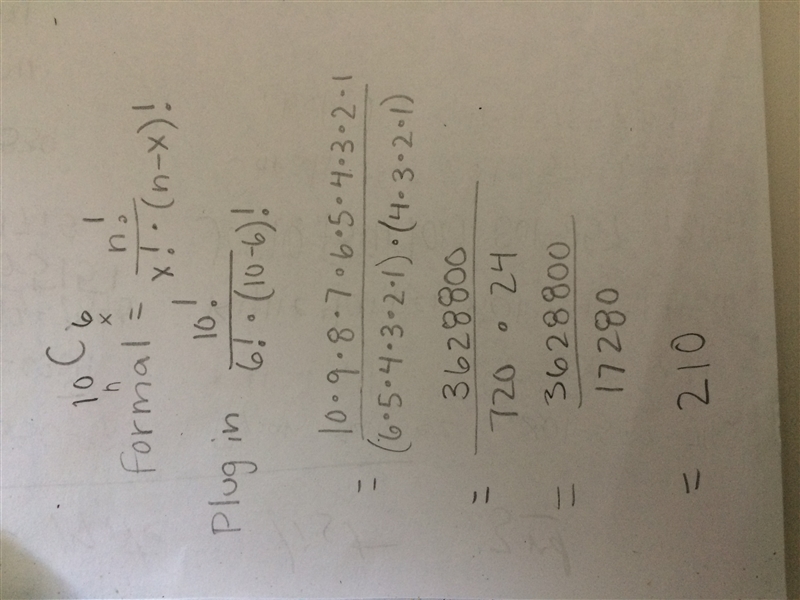 10 C 6
n x
formal = n! / x! · (n-x)!
Plug in 10! / 6! · (10-6)!
= 10·9·8·7·6·5·4·3·2·1 / (6·5·4·3·2·1)·(4·3·2·1)
= 3628800 / 720 · 24
= 3628800 / 17280
= 210